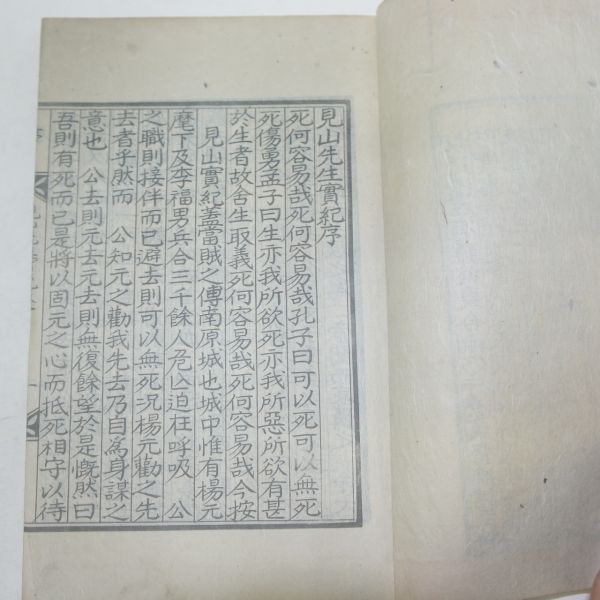 見山先生實紀序
死何容易哉死何容易哉孔子曰可以死可以無死
死傷勇孟子曰生亦我所欲死亦我所惡所欲有甚
於生者故舍生取義死何容易哉死何容易哉今按
見山實紀蓋當賊之傅南原城也城中惟有楊元
麾下及李福男兵合三千餘人危亾迫在呼吸　公
之職則接伴而已避去則可以無死況楊元勸之先
去者乎然而　公知元之勸我先去乃自為身謀之
意也　公去則元去元去則無復餘望於是慨然曰
吾則有死而已是將以固元之心而抵死相守以待